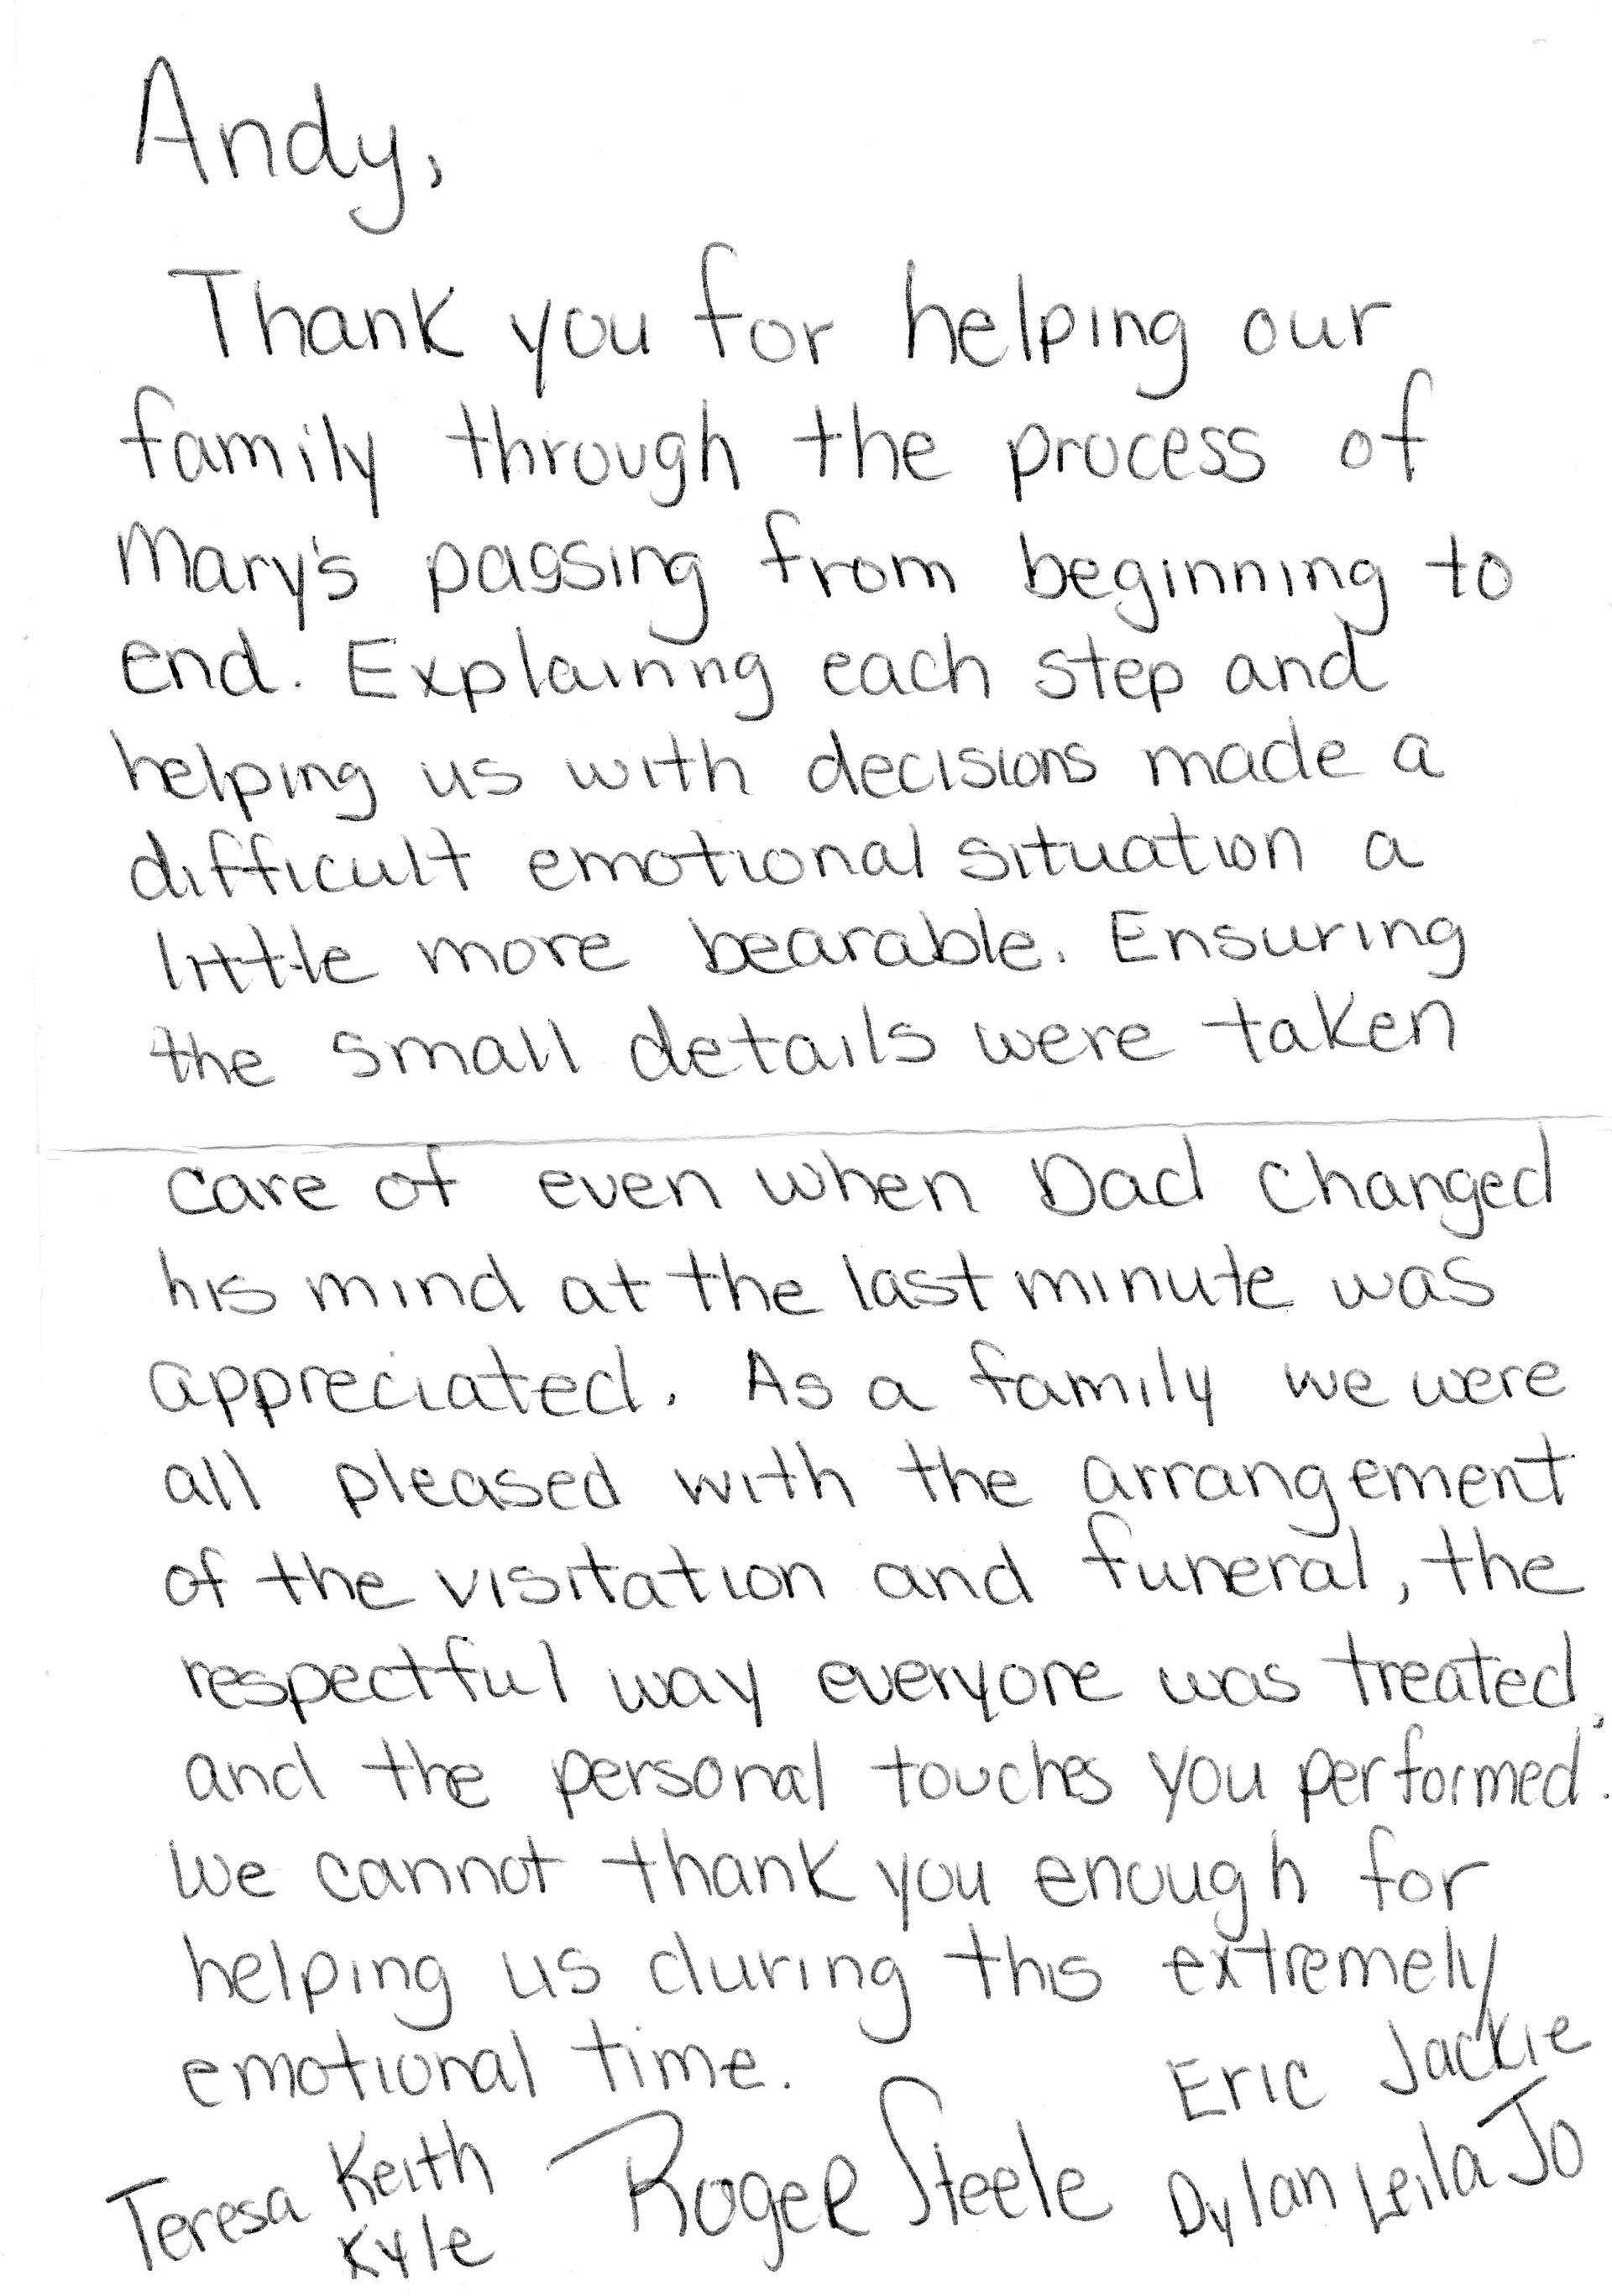 Andy,
Thank you for helping our
family through the process of
Mary's passing from beginning to
end. Explaining each step and
helping us with decisions made a
difficult emotional situation a
little more bearable. Ensuring
the small details were taken
care of even when Dad changed
his mind at the last minute was
appreciated. As a family we were
all pleased with the arrangement
of the visitation and funeral, the
respectful way everyone was treated,
and the personal touches you performed.
We cannot thank you enough for
helping us during this extremely
emotional time.
Eric Jackie
Teresa Keith Roger Steele Dylan Leila Jo
Kyle